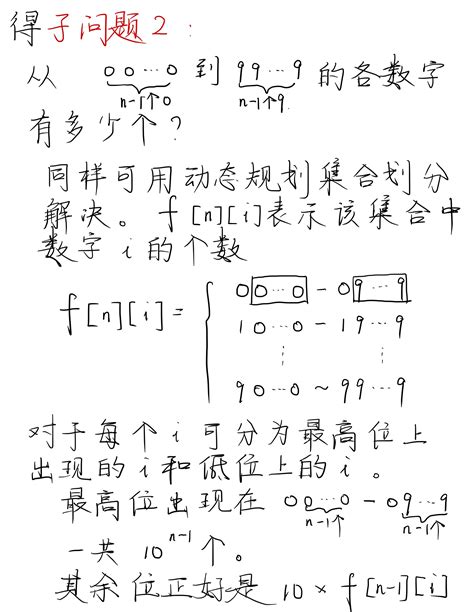 得子问题2:
从 00…0 到 99…9 的各数字
n-1个0 n-1个9
有多少个?
同样可用动态规划集合划分
解决。f[n][i]表示该集合中
数字 i 的个数
0 0…0 - 0 9…9
f[n][i]= { 1 0…0 - 1 9…9
⋮ ⋮
9 0…0 ~ 9 9…9
对于每个 i 可分为最高位上
出现的 i 和低位上的 i。
最高位出现在 0 0…0 - 0 9…9
n-1个 n-1个
一共 10^{n-1} 个。
其余位正好是 10 × f[n-1][i]